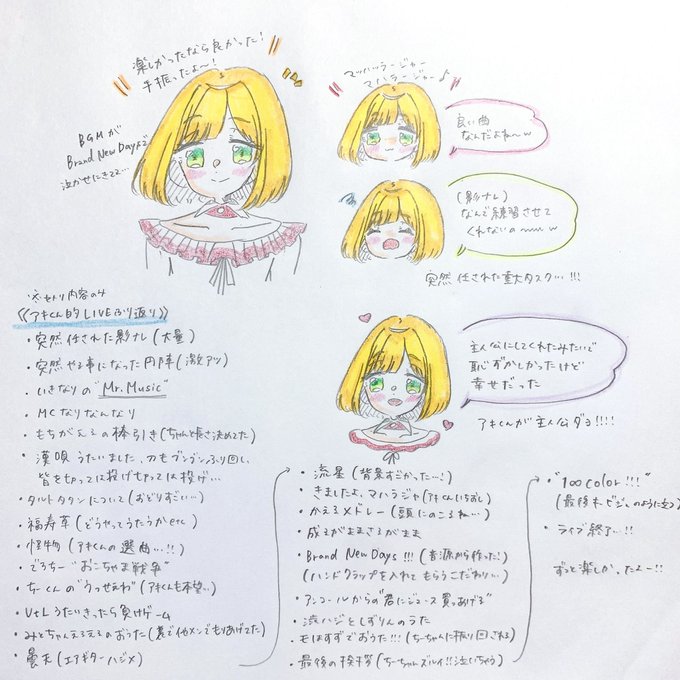 楽しかったなら良かった!
手振ったよ〜!
BGMが
Brand New Daysで
泣かせにきてて…
マッハッラージャー
マハラージャー♪
良い曲
なんだよね〜w
(影ナレ)
なんで練習させて
くれないの〜〜w
突然任された重大タスク…!!!
主人公にしてくれたみたいで
恥ずかしかったけど
幸せだった
アキくんが主人公ダヨ!!!!
※セトリ内容のみ
《アキくん的LIVEふり返り》
・突然任された影ナレ(大量)
・突然やる事になった円陣(激アツ)
・いきなりの"Mr.Music"
・MCなりなんなり
・もちがえるの棒引き(ちゃんと長さ決めてた)
・漢唄うたいました、刀もブンブンふり回し、
皆をちぎっては投げちぎっては投げ…
・タルトタタンについて(おどりすごい…)
・福寿草(どうやってうたうかetc)
・怪物(アキくんの選曲…!!)
・でろちー"おこちゃま戦争"
・ちーくんの"うっせぇわ"(アキくんも本望…)
・U+Lうたいきったら負けゲーム
・みとちゃんえるえるのおうた(裏で他メンでもりあげてた)
・曇天(エアギターハジメ)
・流星(背景すごかった…!)
・きましたよ、マハラジャ(アキくんいちおし)
・かえるメドレー(頭にのこるね…)
・成るがままさるがまま
・Brand New Days!!!(音源から作った!)
(ハンドクラップを入れてもらうこだわり…)
・アンコールからの"君にジュース買ってあげる"
・渋ハジとしずりんのうた
・もはすずでおうた!!!(ちーちゃんに振り回される)
・最後の挨拶(ちーちゃんズルイ!!泣いちゃう)
・"100color!!!"
(最後キービジュのように立つ)
・ライブ終了…!!
ずっと楽しかったよー!!